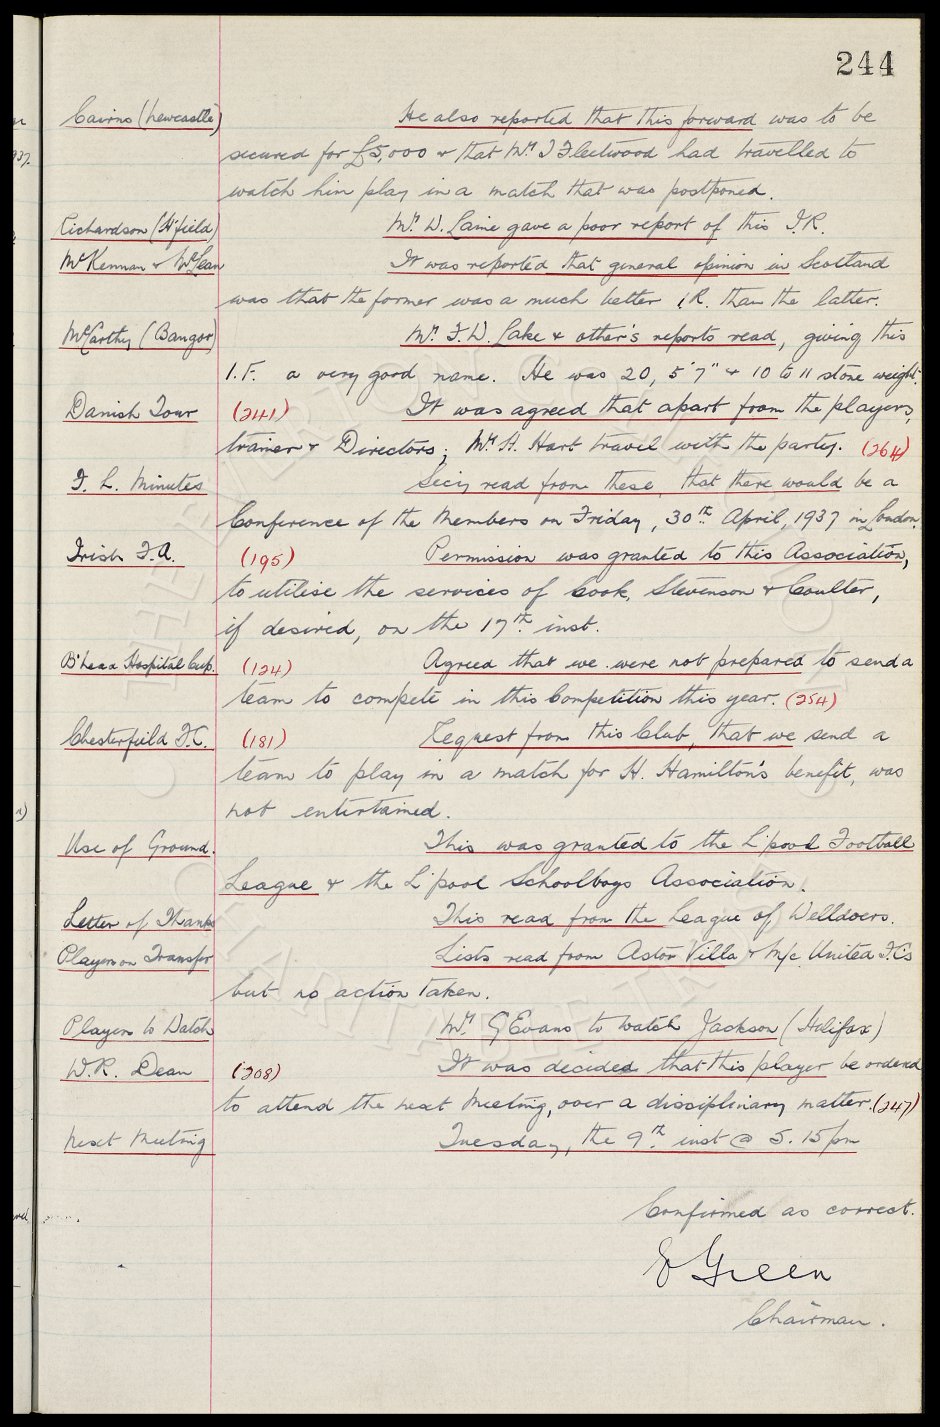 244
Cairns (Newcastle) He also reported that this forward was to be
secured for £5,000 & that Mr. J Fleetwood had travelled to
watch him play in a match that was postponed.
Richardson (H'field) Mr. W. Laine gave a poor report of this I.R.
McKennan & McLean It was reported that general opinion in Scotland
was that the former was a much better I.R. than the latter.
McCarthy (Bangor) Mr. F.W. Lake & other's reports read, giving this
I.F. a very good name. He was 20, 5' 7" & 10 to 11 stone weight.
Danish Tour (241) It was agreed that apart from the players,
trainer & Directors, Mr. H. Hart travel with the party. (264)
F. L. Minutes Secy read from these, that there would be a
Conference of the Members on Friday, 30th. April, 1937 in London.
Irish F.A. (195) Permission was granted to this Association,
to utilise the services of Cook, Stevenson & Coulter,
if desired, on the 17th. inst.
B'head Hospital Cup. (124) Agreed that we were not prepared to send a
team to compete in this Competition this year. (254)
Chesterfield F.C. (181) Request from this Club, that we send a
team to play in a match for H. Hamilton's benefit, was
not entertained.
Use of Ground. This was granted to the L'pool Football
League & the L'pool Schoolboys Association.
Letter of Thanks This read from the League of Welldoers.
Players on Transfer Lists read from Aston Villa & M/c United F.C's
but no action taken.
Players to Watch Mr. G Evans to watch Jackson (Halifax)
W.R. Dean (208) It was decided that this player be ordered
to attend the next Meeting, over a dissiplinary matter. (247)
Next Meeting Tuesday, the 9th. inst @ 5.15pm
Confirmed as correct.
E Green
Chairman.